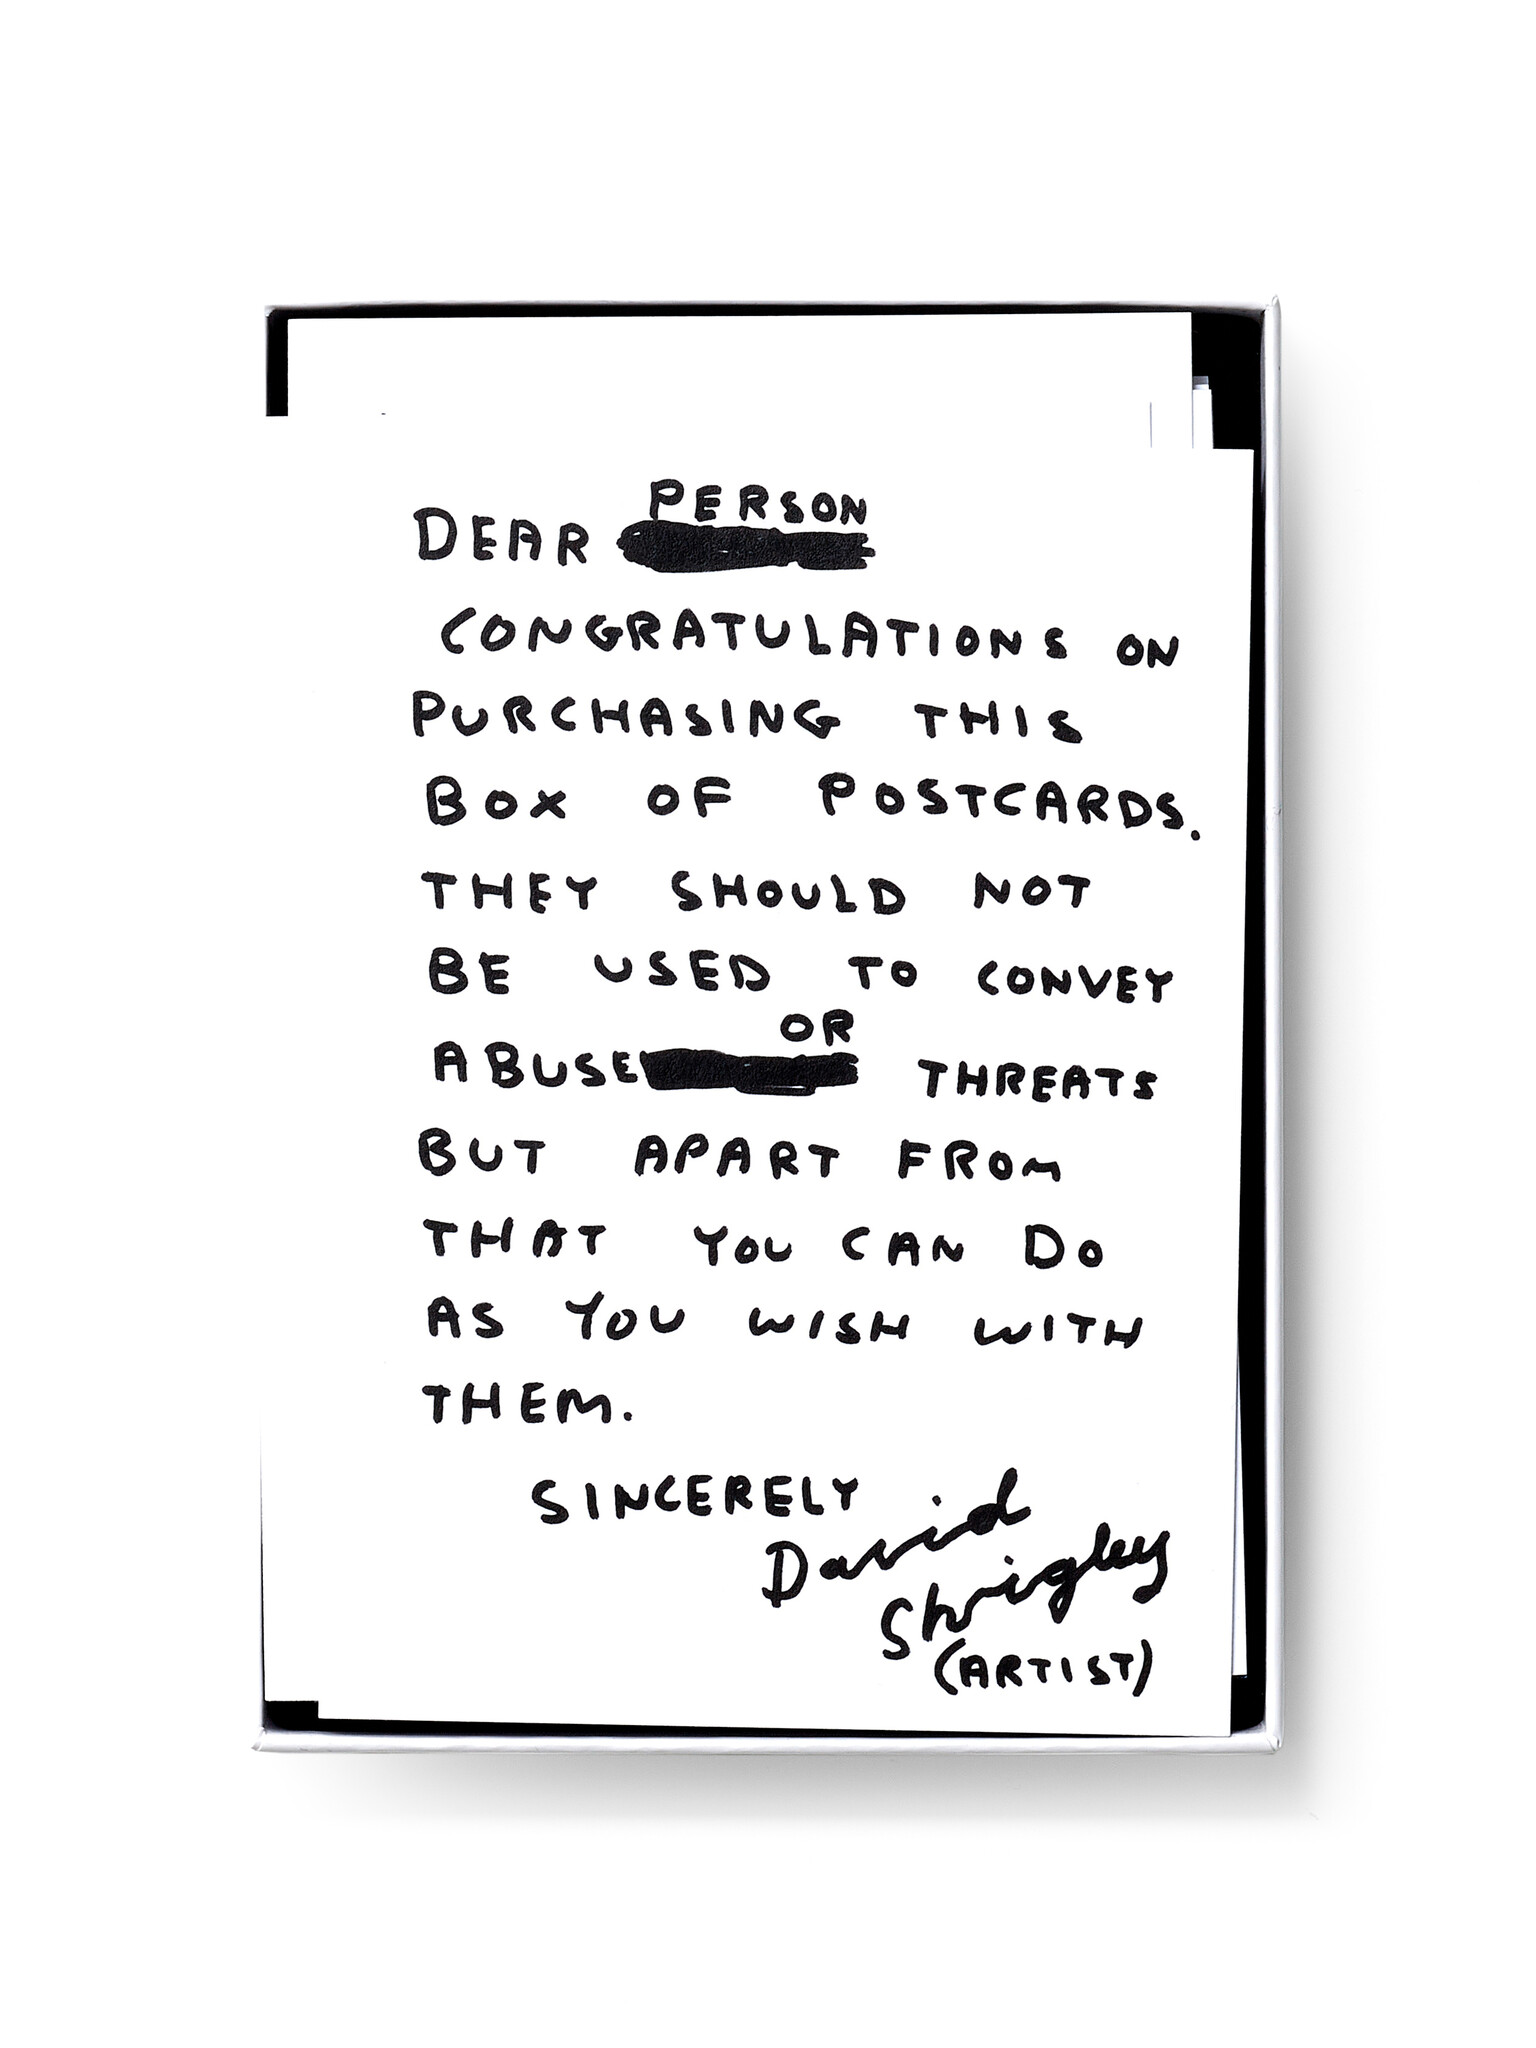 DEAR PERSON
CONGRATULATIONS ON
PURCHASING THIS
BOX OF POSTCARDS.
THEY SHOULD NOT
BE USED TO CONVEY
ABUSE OR THREATS
BUT APART FROM
THAT YOU CAN DO
AS YOU WISH WITH
THEM.
SINCERELY
David
Shrigley
(ARTIST)